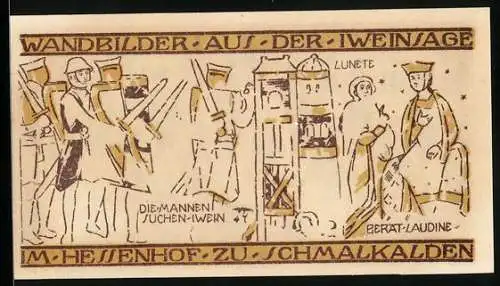 WANDBILDER · AUS · DER · IWEINSAGE
LUNETE
DIE·MANNEN
SUCHEN·IWEIN
BERÄT·LAUDINE
IM·HESSENHOF·ZU·SCHMALKALDEN